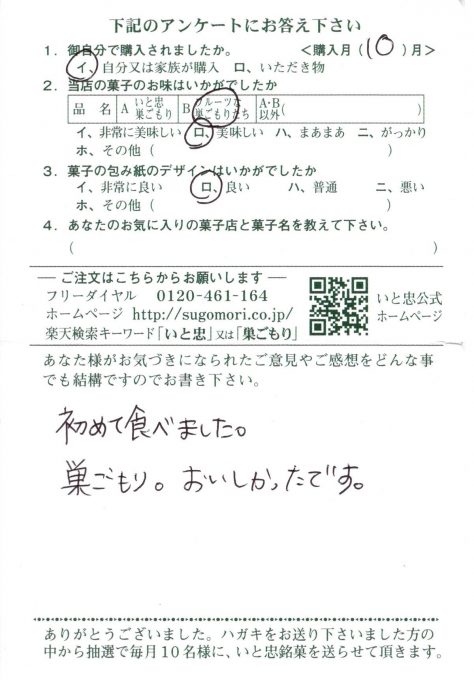 下記のアンケートにお答え下さい
1．御自分で購入されましたか。 ＜購入月（10）月＞
イ、自分又は家族が購入 ロ、いただき物
2．当店の菓子のお味はいかがでしたか
品名 A いと忠巣ごもり B フルーツな巣ごもりたち A・B以外（ ）
イ、非常に美味しい ロ、美味しい ハ、まあまあ ニ、がっかり
ホ、その他（ ）
3．菓子の包み紙のデザインはいかがでしたか
イ、非常に良い ロ、良い ハ、普通 ニ、悪い
ホ、その他（ ）
4．あなたのお気に入りの菓子店と菓子名を教えて下さい。
（ ）
ご注文はこちらからお願いします
フリーダイヤル 0120-461-164
ホームページ http://sugomori.co.jp/
楽天検索キーワード「いと忠」又は「巣ごもり」
いと忠公式
ホームページ
あなた様がお気づきになられたご意見やご感想をどんな事
でも結構ですのでお書き下さい。
初めて食べました。
巣ごもり。おいしかったです。
ありがとうございました。ハガキをお送り下さいました方の
中から抽選で毎月10名様に、いと忠銘菓を送らせて頂きます。